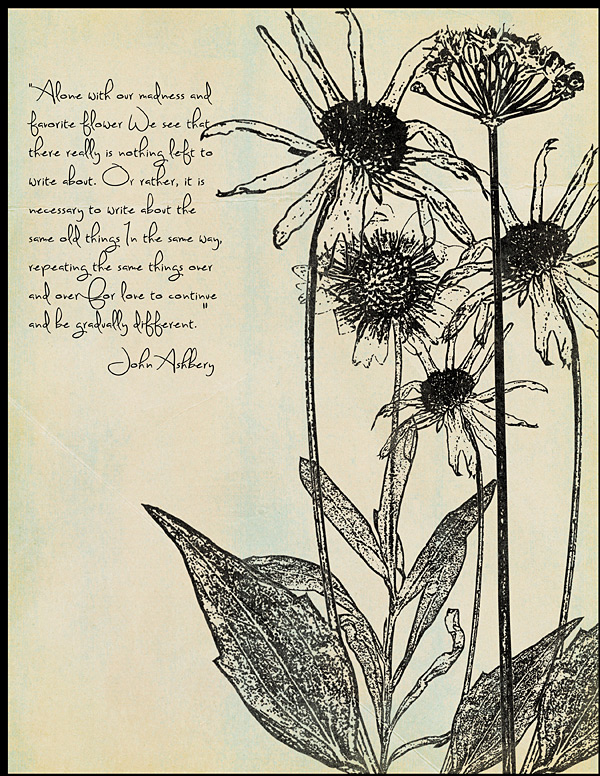 "Alone with our madness and
favorite flower We see that
there really is nothing left to
write about. Or rather, it is
necessary to write about the
same old things In the same way,
repeating the same things over
and over For love to continue
and be gradually different."
John Ashbery